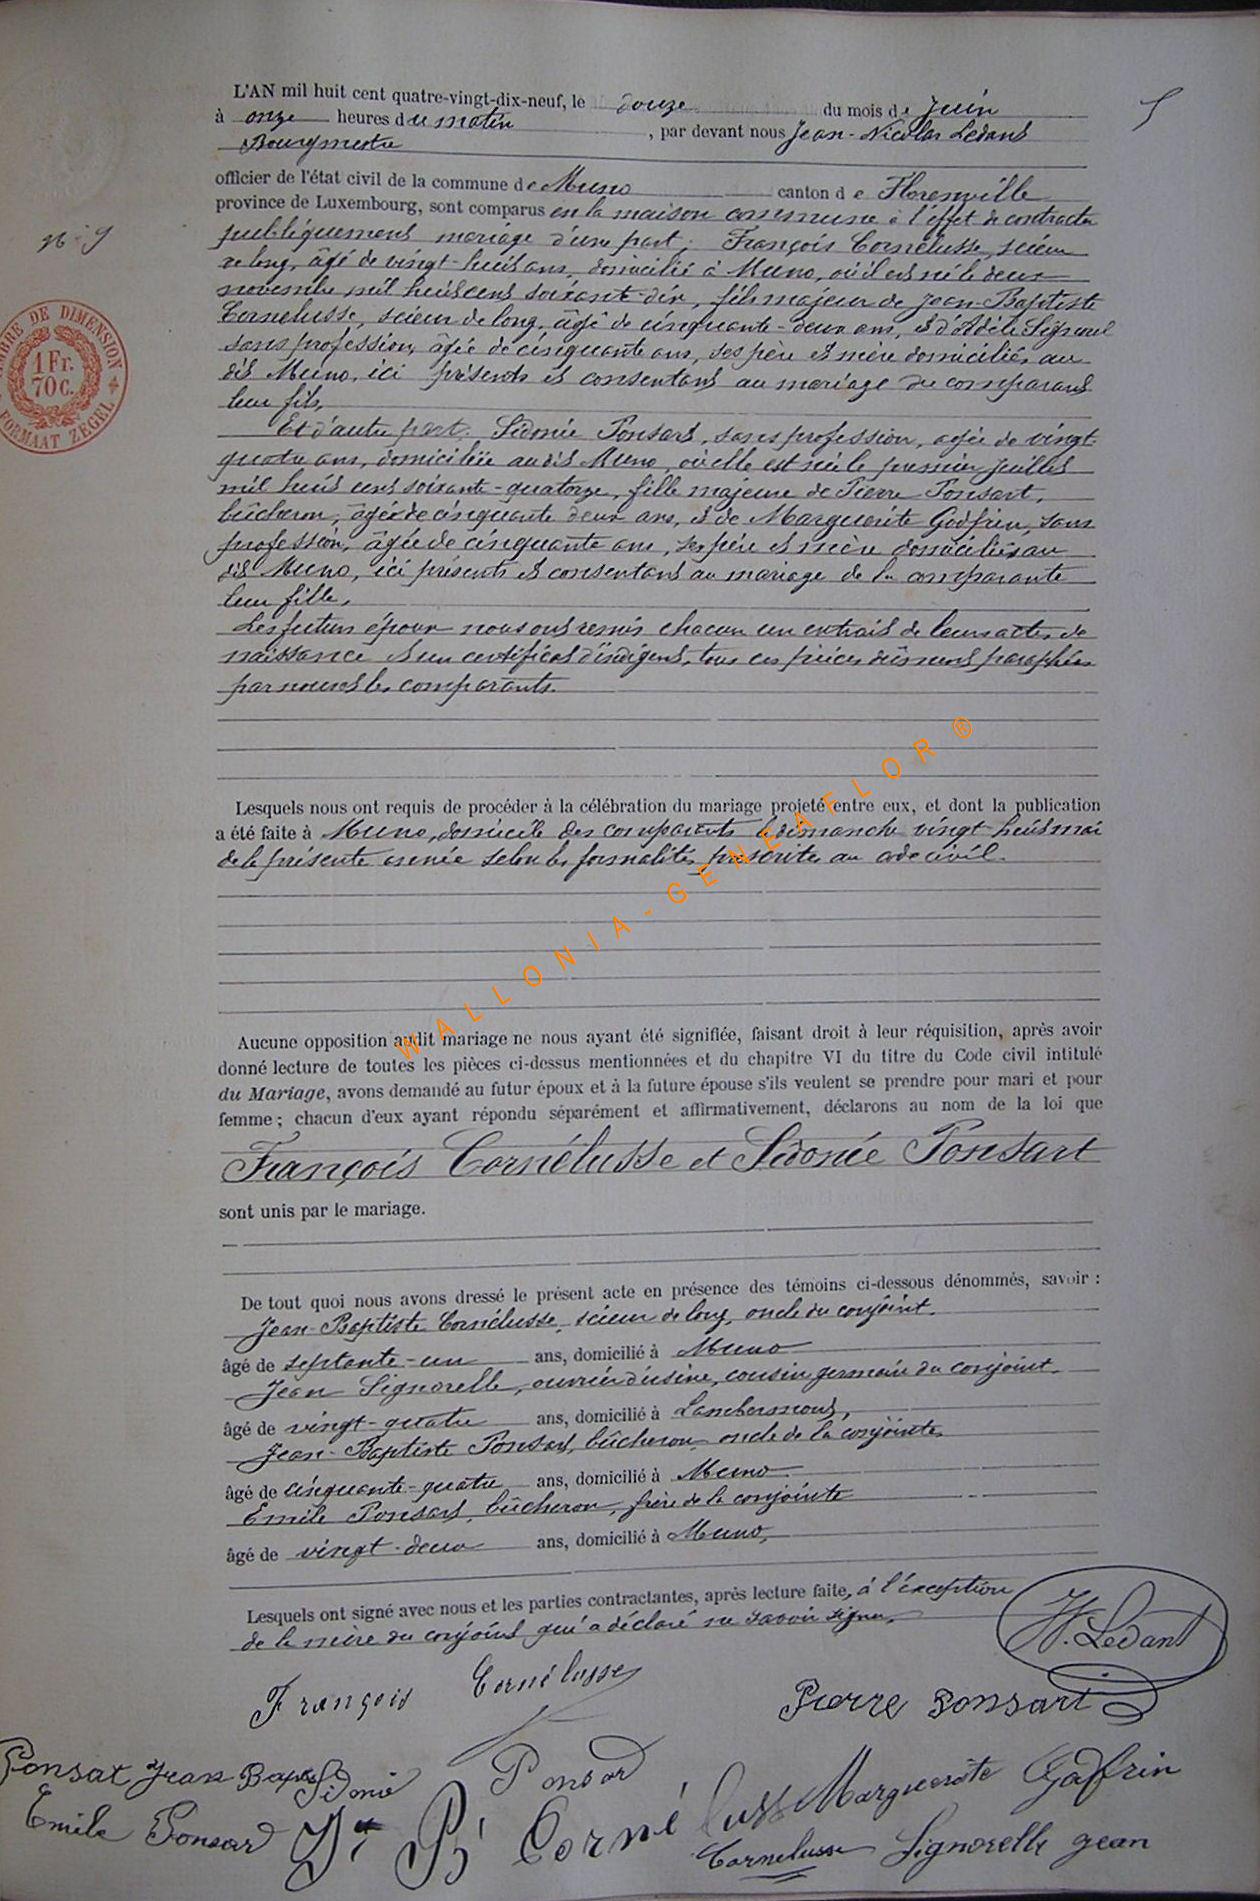 L'AN mil huit cent quatre-vingt-dix-neuf, le douze du mois de Juin
5
à onze heures du matin, par devant nous Jean-Nicolas Ledant
Bourgmestre
officier de l'état civil de la commune de Muno canton de Florenville
province de Luxembourg, sont comparus en la maison commune à l'effet de contracter
publiquement mariage d'une part, François Cornélusse, scieur
de long, âgé de vingt-huit ans, domicilié à Muno, où il est né le deux
novembre mil huit cent soixante-dix, fils majeur de Jean-Baptiste
Cornelusse, scieur de long, âgé de cinquante-deux ans, et d'Adèle Signorel
sans profession, âgée de cinquante ans, ses père et mère domiciliés au
dit Muno, ici présents et consentant au mariage du comparant
leur fils,
Et d'autre part, Sidonie Ponsart, sans profession, agée de vingt-
quatre ans, domiciliée audit Muno, où elle est née le premier juillet
mil huit cent soixante-quatorze, fille majeure de Pierre Ponsart,
bûcheron, âgé de cinquante deux ans, et de Marguerite Godfrin, sans
profession, âgée de cinquante ans, ses père et mère domiciliés au
dit Muno, ici présents et consentant au mariage de la comparante
leur fille,
Les futurs époux nous ont remis chacun un extrait de leurs actes de
naissance et un certificat d'indigent, tous ces pièces dûment paraphées
par nous et les comparants.
n° 9
TIMBRE DE DIMENSION
1 Fr.
70 C.
FORMAAT ZEGEL
Lesquels nous ont requis de procéder à la célébration du mariage projeté entre eux, et dont la publication
a été faite à Muno, domicile des comparants le dimanche vingt-huit mai
de la présente année selon les formalités prescrites au code civil.
WALLONIA-GENEAFLOR®
Aucune opposition audit mariage ne nous ayant été signifiée, faisant droit à leur réquisition, après avoir
donné lecture de toutes les pièces ci-dessus mentionnées et du chapitre VI du titre du Code civil intitulé
du Mariage, avons demandé au futur époux et à la future épouse s'ils veulent se prendre pour mari et pour
femme ; chacun d'eux ayant répondu séparément et affirmativement, déclarons au nom de la loi que
François Cornélusse et Sidonie Ponsart
sont unis par le mariage.
De tout quoi nous avons dressé le présent acte en présence des témoins ci-dessous dénommés, savoir :
Jean-Baptiste Cornélusse, scieur de long, oncle du conjoint,
âgé de septante-un ans, domicilié à Muno
Jean Signorelle, ouvrier d'usine, cousin germain du conjoint
âgé de vingt-quatre ans, domicilié à Lambermont,
Jean-Baptiste Ponsart, bûcheron, oncle de la conjointe,
âgé de cinquante-quatre ans, domicilié à Muno
Emile Ponsart, bûcheron, frère de la conjointe
âgé de vingt-deux ans, domicilié à Muno,
Lesquels ont signé avec nous et les parties contractantes, après lecture faite, à l'exception
de la mère du conjoint qui a déclaré ne savoir signer.
Ledant
François Cornélusse
Pierre Ponsart
Ponsat Jean Bapt
Sidonie Ponsard
Marguerite Gaffrin
Emile Ponsard
Jn Bt Cornélusse
Cornelusse
Signorelle jean